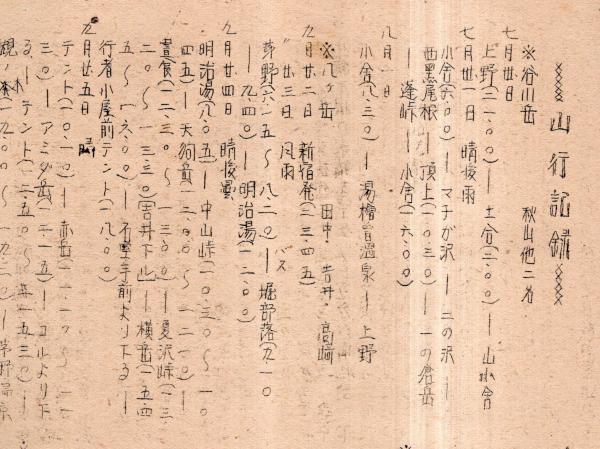 ××××山行記録××××
※谷川岳　秋山他二名
七月廿日
上野(二一.〇〇)ー土合(三.〇〇)ー山小舎
七月廿一日　晴後雨
小舎(六.〇〇)ーマチが沢ー二の沢ー
西黒尾根ー頂上(一〇.三〇)ー一の倉岳
ー蓬峠ー小舎(一六.〇〇)
八月一日
小舎(八.三〇)ー湯檜曽温泉ー上野
※八ヶ岳　田中・吉井・高崎
九月廿二日　新宿発(二三.四五)
〃廿三日　風雨
茅野(六.一五〜八.二〇)ーバス 堀部落(九.一〇
ー九.四〇)ー明治湯(一二.〇〇)
九月廿四日　晴後曇
明治湯(八.〇五)ー中山峠(一〇.三〇〜一〇
四五)ー天狗岳(一二.〇〇〜一二.一〇)ー
昼食(一二.三〇〜一三.〇〇)ー夏沢峠(一三
二〇〜一三.三〇)(吉井下山)ー横岳(一五.四
五〜一六.〇〇)ー石室手前より下るー
行者小屋前テント(一八.〇〇)
九月廿五日　晴
テント(一〇.一〇)ー赤岳
三〇)ーアミダ岳(一二.一五)ーコルより下
るーテント(一二.五〇〜一五.三〇)ー
(一九.〇〇〜一九.二〇)ー茅野